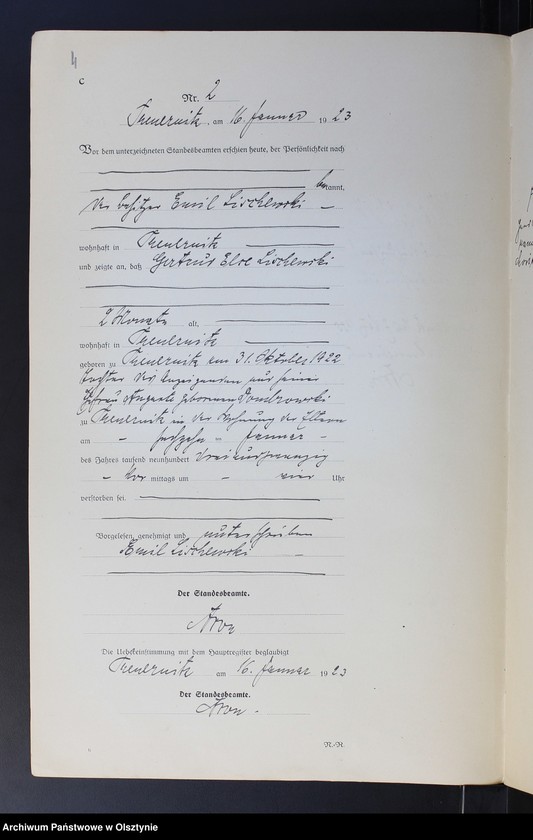 4
C
Nr. 2
Treuernitz am 16. Januar 1923
Vor dem unterzeichneten Standesbeamten erschien heute, der Persönlichkeit nach
bekannt,
der Besitzer Emil Lischewski
wohnhaft in Treuernitz
und zeigte an, daß Gertrud Else Lischewski
2 Monate alt,
wohnhaft in Treuernitz
geboren zu Treuernitz am 31. Oktober 1922
Tochter des Anzeigenden und seiner
Ehefrau Auguste geborenen Dombrowski
zu Treuernitz in der Wohnung der Eltern
am sechzehn Januar
des Jahres tausend neunhundert dreiundzwanzig
Vor mittags um vier Uhr
verstorben sei.
Vorgelesen, genehmigt und unterschrieben
Emil Lischewski
Der Standesbeamte.
Die Uebereinstimmung mit dem Hauptregister beglaubigt
Treuernitz am 16. Januar 1923
Der Standesbeamte.
N/R.
Archiwum Państwowe w Olsztynie